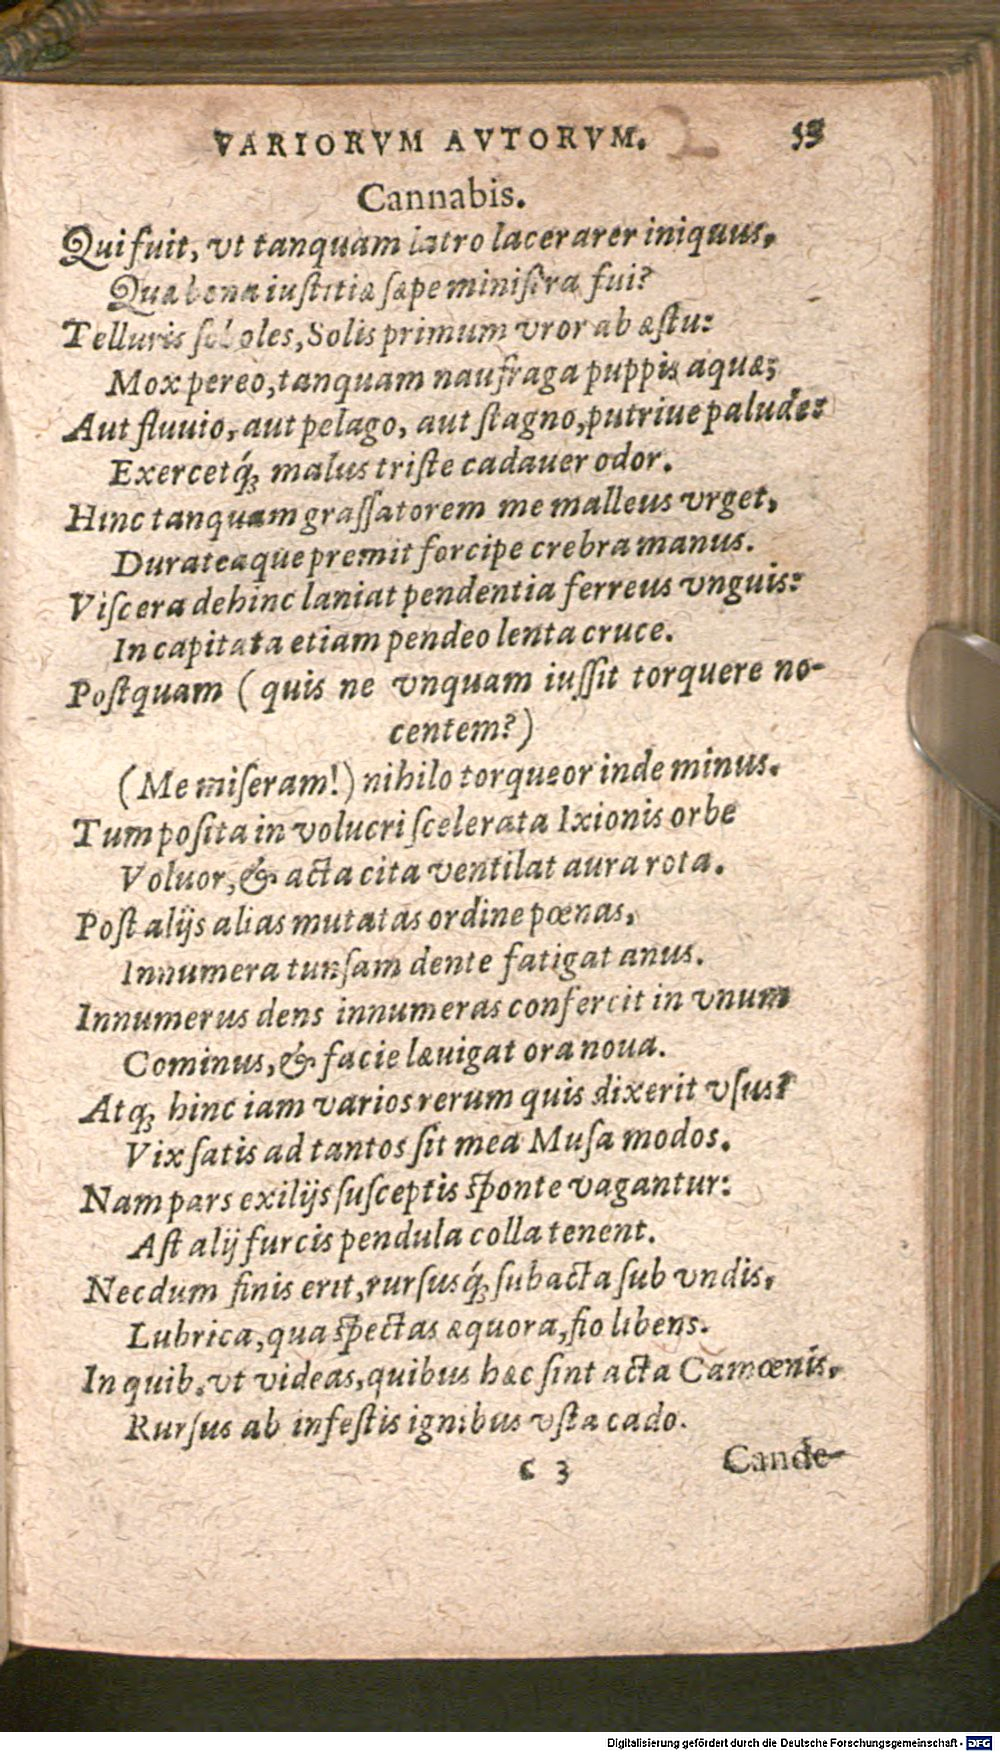 VARIORVM AVTORVM. 53
Cannabis.
Qui fuit, vt tanquam latro lacerarer iniquus,
Quæ bona iuſtitiæ ſæpe miniſtra fui?
Telluris ſoboles, Solis primum vror ab æſtu:
Mox pereo, tanquam naufraga puppis aquæ;
Aut fluuio, aut pelago, aut ſtagno, putriue palude:
Exercetq́; malus triſte cadauer odor.
Hinc tanquam graſſatorem me malleus vrget,
Durateaque premit forcipe crebra manus.
Viſcera dehinc laniat pendentia ferreus vnguis:
In capitata etiam pendeo lenta cruce.
Poſtquam ( quis ne vnquam iuſſit torquere no-
centem? )
( Me miſeram! ) nihilo torqueor inde minus.
Tum poſita in volucri ſcelerata Ixionis orbe
Voluor, & acta cita ventilat aura rota.
Poſt alijs alias mutatas ordine pœnas,
Innumera tunſam dente fatigat anus.
Innumerus dens innumeras confercit in vnum
Cominus, & facie læuigat ora noua.
Atq; hinc iam varios rerum quis dixerit vſus?
Vix ſatis ad tantos ſit mea Muſa modos.
Nam pars exilijs ſuſceptis ſponte vagantur:
Aſt alij furcis pendula colla tenent.
Necdum finis erit, rurſusq́; ſubacta ſub vndis,
Lubrica, qua ſpectas æquora, fio libens.
In quib. vt videas, quibus hæc ſint acta Camœnis,
Rurſus ab infeſtis ignibus vſta cado.
c 3 Cande-
Digitalisierung gefördert durch die Deutsche Forschungsgemeinschaft - DFG